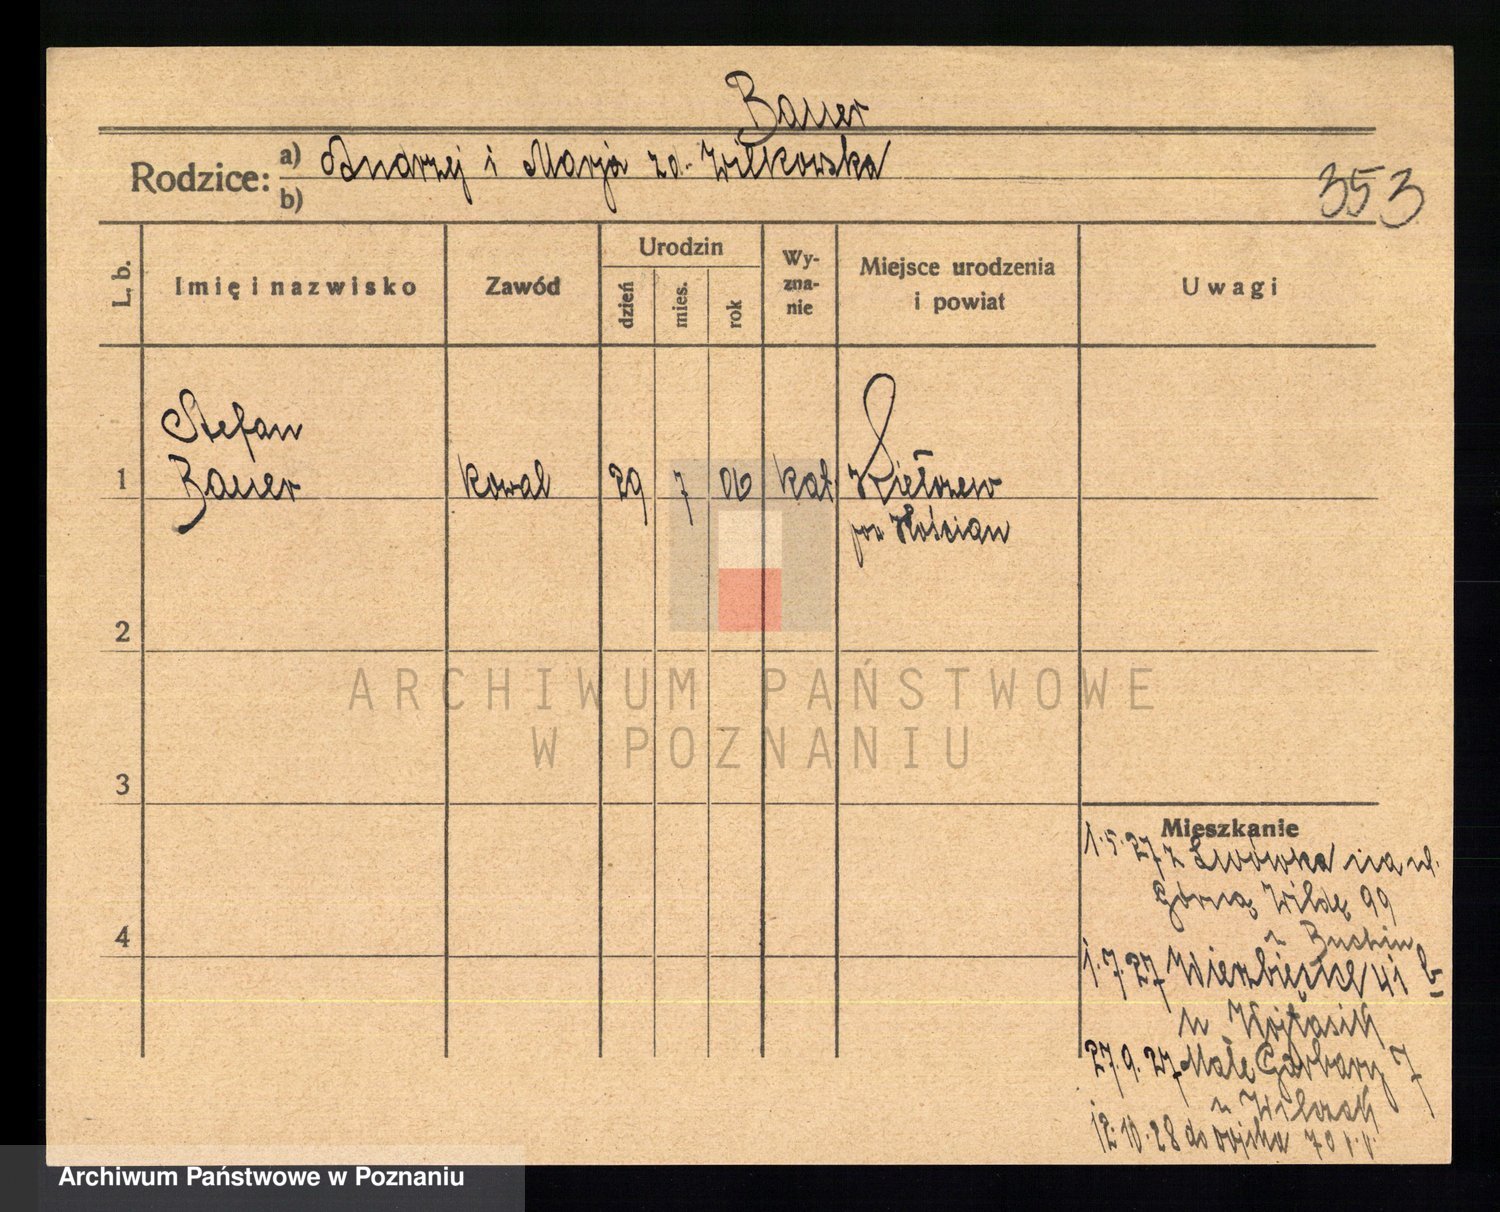 Bauer
Rodzice: a) Andrzej i Marja zd. Wilkowska
b)
353
L. b.
Imię i nazwisko
Zawód
Urodzin
dzień
mies.
rok
Wy-
zna-
nie
Miejsce urodzenia
i powiat
Uwagi
Stefan
1 Bauer kowal 29 7 06 kat Kiełczewo
pow Kościan
2
3
4
ARCHIWUM PAŃSTWOWE
W POZNANIU
Mieszkanie
1.5.27 z Lwówka na ul.
Górną Wildę 99
u
1.7.27 Wierzbięcice 41 b
u Wojtasik
27.9.27 Małe Garbary 7
u Wilczak
12.10.28 do wojska 70
Archiwum Państwowe w Poznaniu